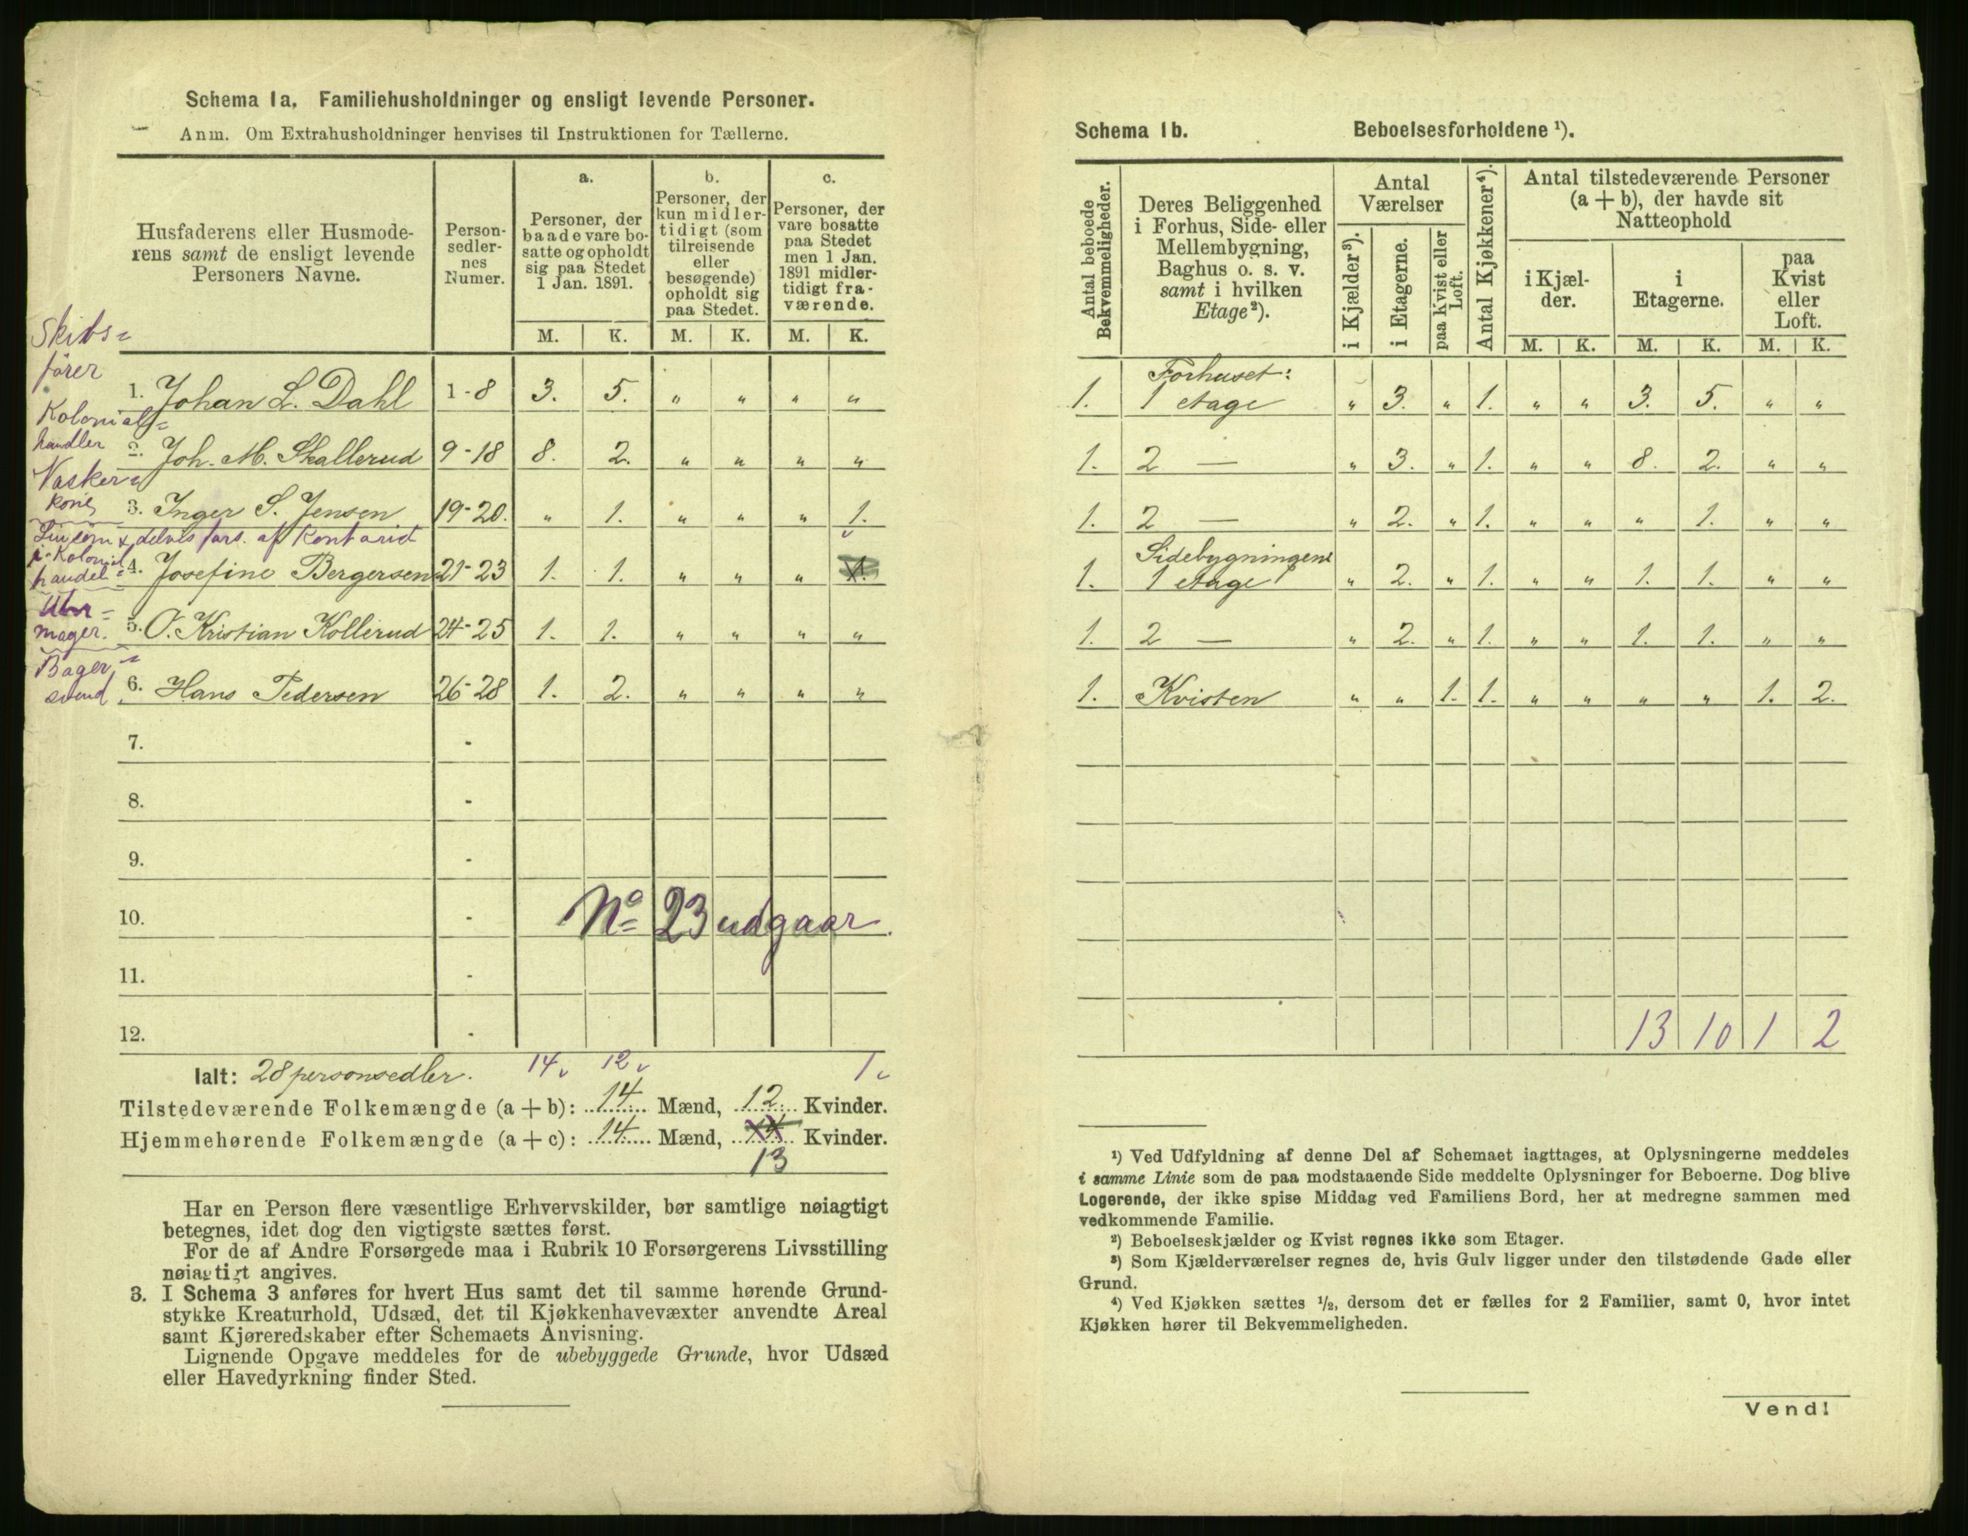 Schema 1a. Familiehusholdninger og ensligt levende Personer.
Anm. Om Extrahusholdninger henvises til Instruktionen for Tællerne.
Husfaderens eller Husmoderens samt de ensligt levende Personers Navne.
Person-sedler-nes Numer.
a.
Personer, der baade vare bosatte og opholdt sig paa Stedet 1 Jan. 1891.
b.
Personer, der kun midlertidigt (som tilreisende eller besøgende) opholdt sig paa Stedet.
c.
Personer, der vare bosatte paa Stedet men 1 Jan. 1891 midlertidigt fraværende.
M. K. M. K. M. K.
Skibs=
fører
1. Johan L. Dahl 1-8 3. 5. " " " "
Kolonial=
handler
2. Joh. M. Skallerud 9-18 8. 2. " " " "
Vasker=
kone
3. Inger S. Jensen 19-20. " 1. " " " 1.
delvis fors. af Kontorid
i Kolonial
handel
4. Josefine Bergersen 21-23 1. 1. " " " 1.
Uhr=
mager.
5. O. Kristian Kollerud 24-25 1. 1. " " " "
Bager=
svend.
6. Hans Pedersen 26-28 1. 2. " " " "
7. -
8. -
9. -
10. -
No 23 udgaar.
11. -
12. -
Ialt: 28 personsedler. 14 12 1
Tilstedeværende Folkemængde (a + b): 14 Mænd, 12 Kvinder.
Hjemmehørende Folkemængde (a + c): 14 Mænd, 14 Kvinder.
13
Har en Person flere væsentlige Erhvervskilder, bør samtlige nøiagtigt
betegnes, idet dog den vigtigste sættes først.
For de af Andre Forsørgede maa i Rubrik 10 Forsørgerens Livsstilling
nøiagtigt angives.
3. I Schema 3 anføres for hvert Hus samt det til samme hørende Grund-
stykke Kreaturhold, Udsæd, det til Kjøkkenhavevæxter anvendte Areal
samt Kjøreredskaber efter Schemaets Anvisning.
Lignende Opgave meddeles for de ubebyggede Grunde, hvor Udsæd
eller Havedyrkning finder Sted.
Schema 1b. Beboelsesforholdene ¹).
Antal beboede Bekvemmeligheder.
Deres Beliggenhed i Forhus, Side- eller Mellembygning, Baghus o. s. v. samt i hvilken Etage ²).
Antal Værelser
i Kjælder ³).
i Etagerne.
paa Kvist eller Loft.
Antal Kjøkkener ⁴).
Antal tilstedeværende Personer (a + b), der havde sit Natteophold
i Kjælder.
i Etagerne.
paa Kvist eller Loft.
M. K. M. K. M. K.
Forhuset:
1. 1 etage " 3. " 1. " " 3. 5. " "
1. 2 — " 3. " 1. " " 8. 2. " "
1. 2 — " 2. " 1. " " " 1. " "
Sidebygningen:
1. 1 etage " 2. " 1. " " 1. 1. " "
1. 2 — " 2. " 1. " " 1. 1. " "
1. Kvisten " " 1. 1. " " " " 1. 2.
13 10 1 2
¹) Ved Udfyldning af denne Del af Schemaet iagttages, at Oplysningerne meddeles
i samme Linie som de paa modstaaende Side meddelte Oplysninger for Beboerne. Dog blive
Logerende, der ikke spise Middag ved Familiens Bord, her at medregne sammen med
vedkommende Familie.
²) Beboelseskjælder og Kvist regnes ikke som Etager.
³) Som Kjælderværelser regnes de, hvis Gulv ligger under den tilstødende Gade eller
Grund.
⁴) Ved Kjøkken sættes ½, dersom det er fælles for 2 Familier, samt 0, hvor intet
Kjøkken hører til Bekvemmeligheden.
Vend!